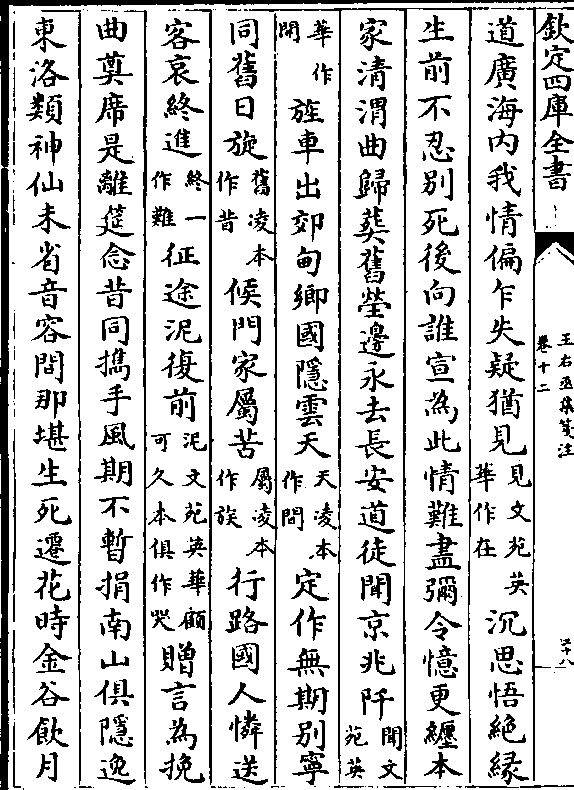 欽定四庫全書
王右丞集箋注
卷十二
道廣海内我情偏乍失疑猶見見文苑英華作在沉思悟絶縁
生前不忍别死後向誰宣為此情難盡彌令憶更纒本
家清渭曲歸葬舊塋邊永去長安道徒聞京兆阡聞文苑英
華作開旌車出郊甸鄉國隱雲天天凌本作間定作無期别寧
同舊日旋舊凌本作昔候門家屬苦屬凌本作族行路國人憐送
客哀終進終一作難征途泥復前泥文苑英華顧可久本俱作哭贈言為挽
曲奠席是離筵念昔同攜手風期不暫捐南山俱隱逸
東洛類神仙未省音容間那堪生死遷花時金谷飲月